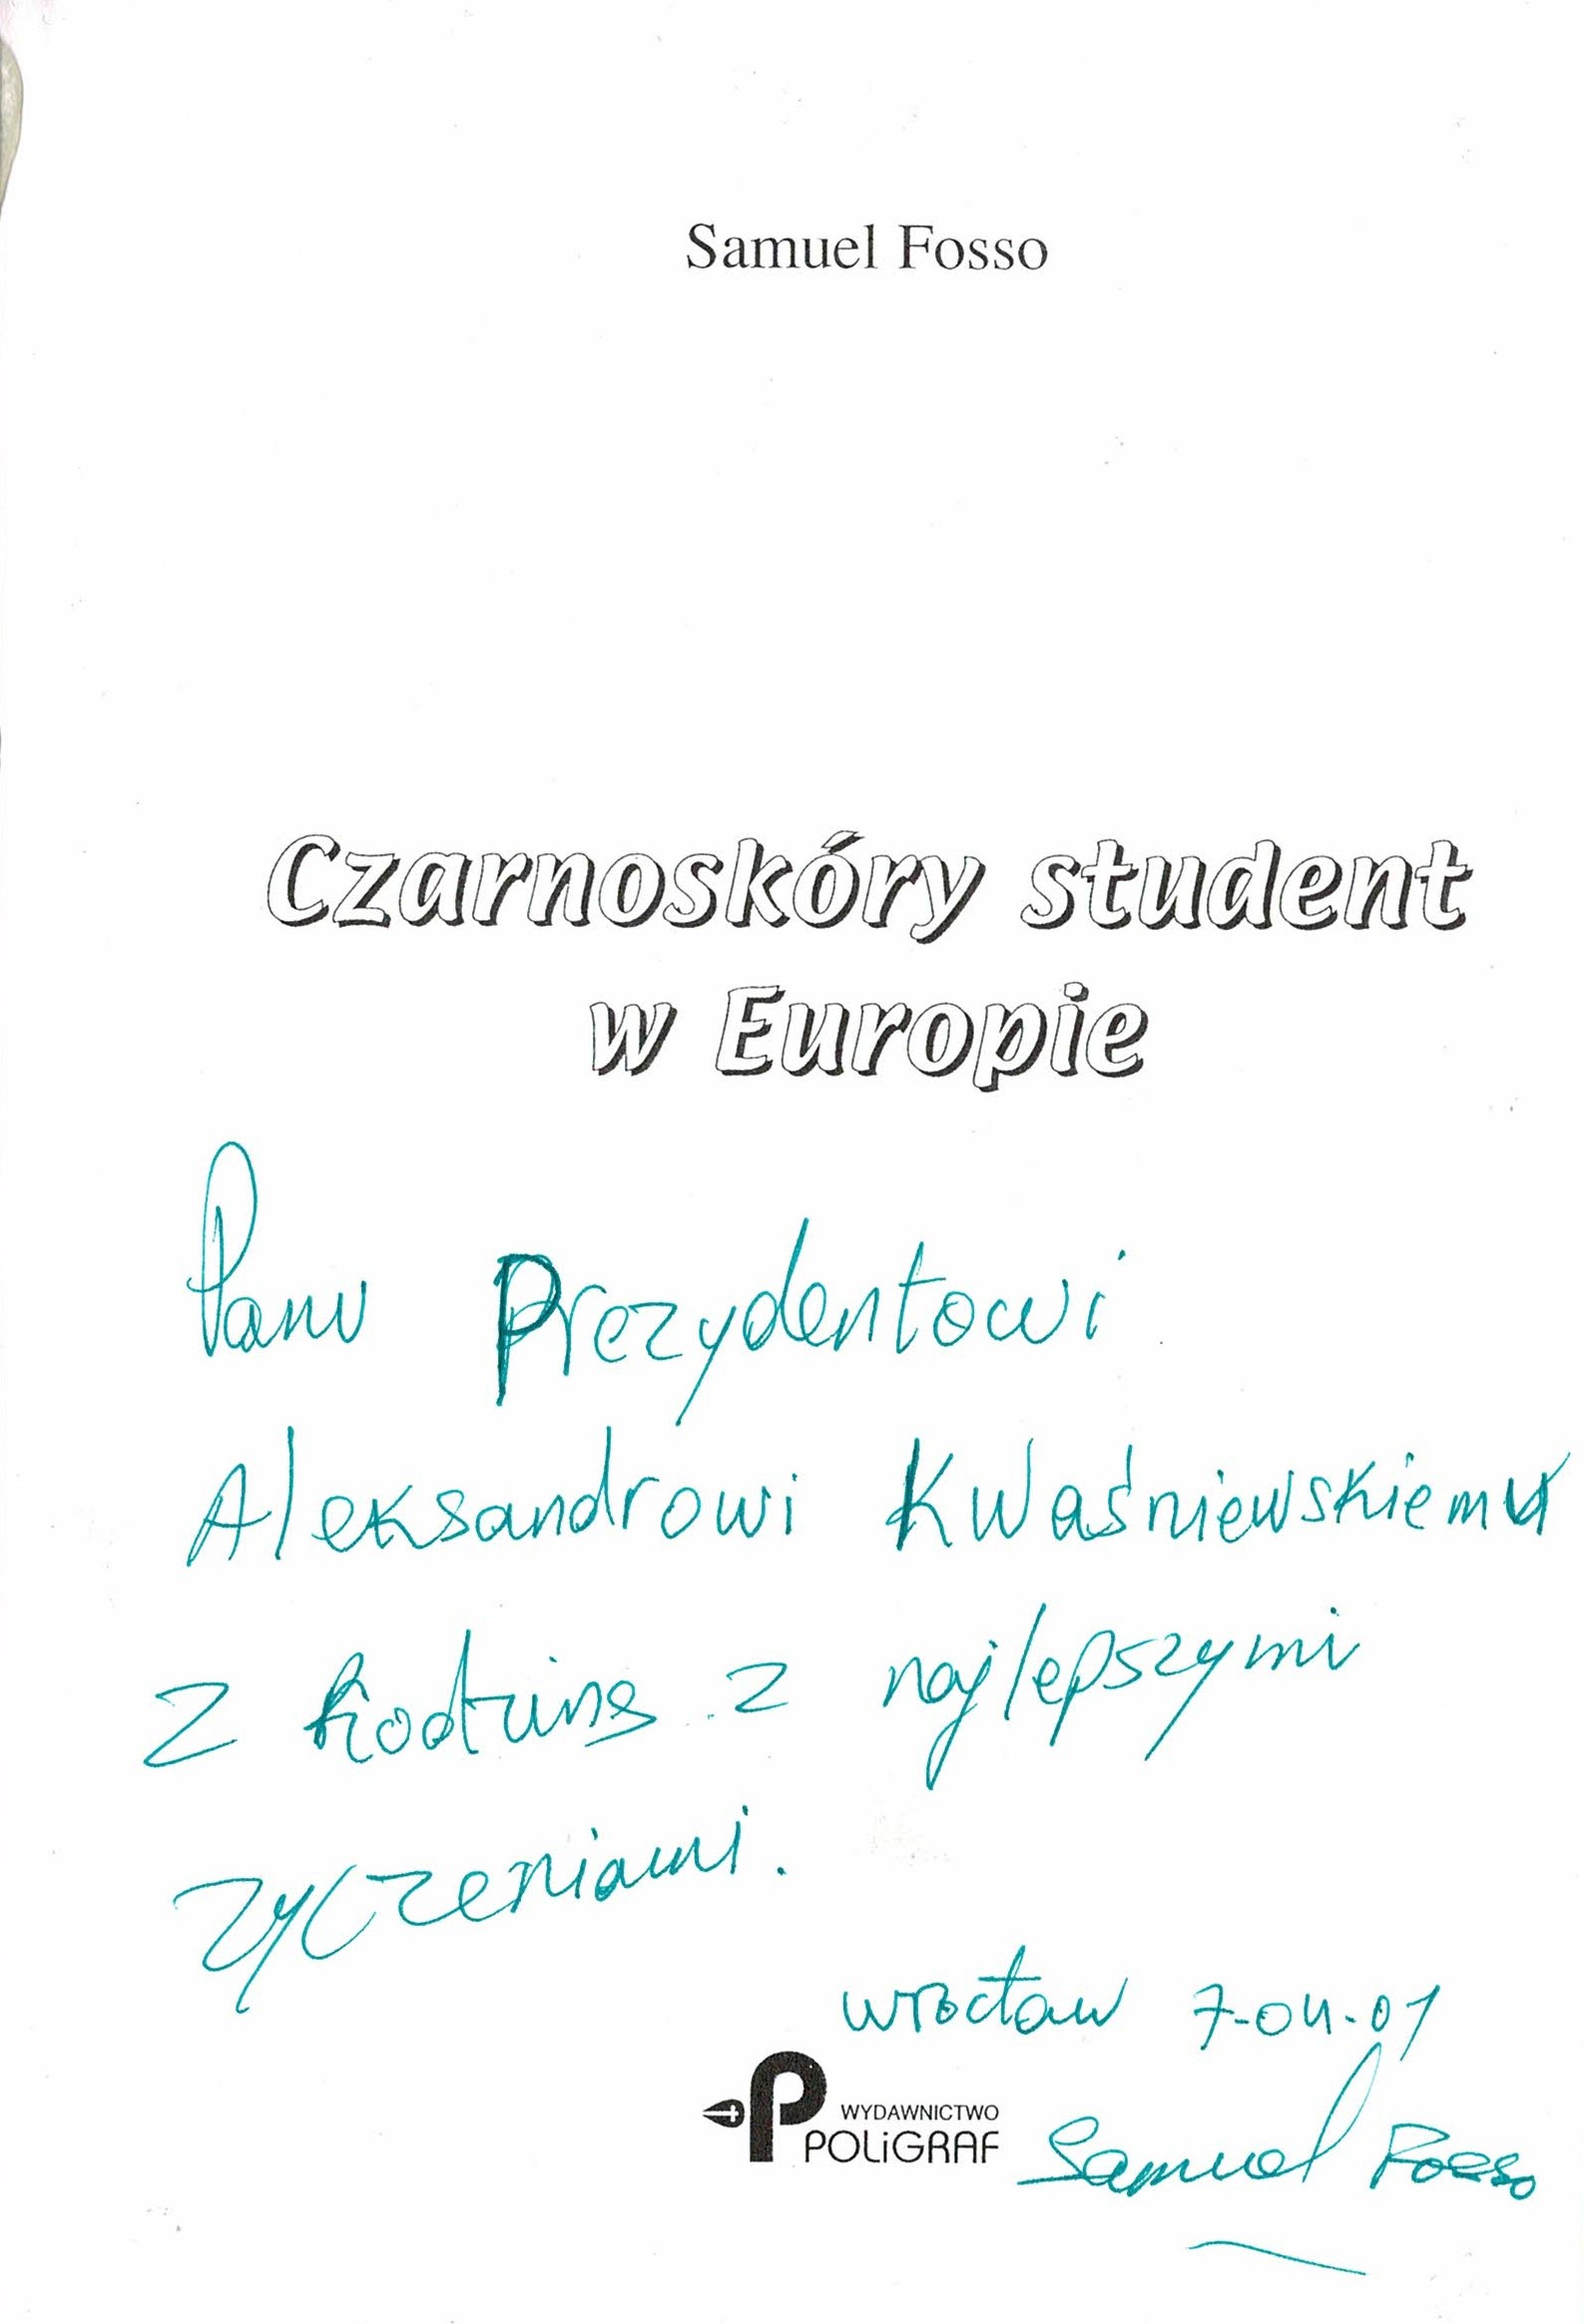 Samuel Fosso
Czarnoskóry student
w Europie
Panu Prezydentowi
Aleksandrowi Kwaśniewskiemu
z Rodziną z najlepszymi
życzeniami.
Wrocław 7-04-01
WYDAWNICTWO
POLiGRAF
Samuel Fosso